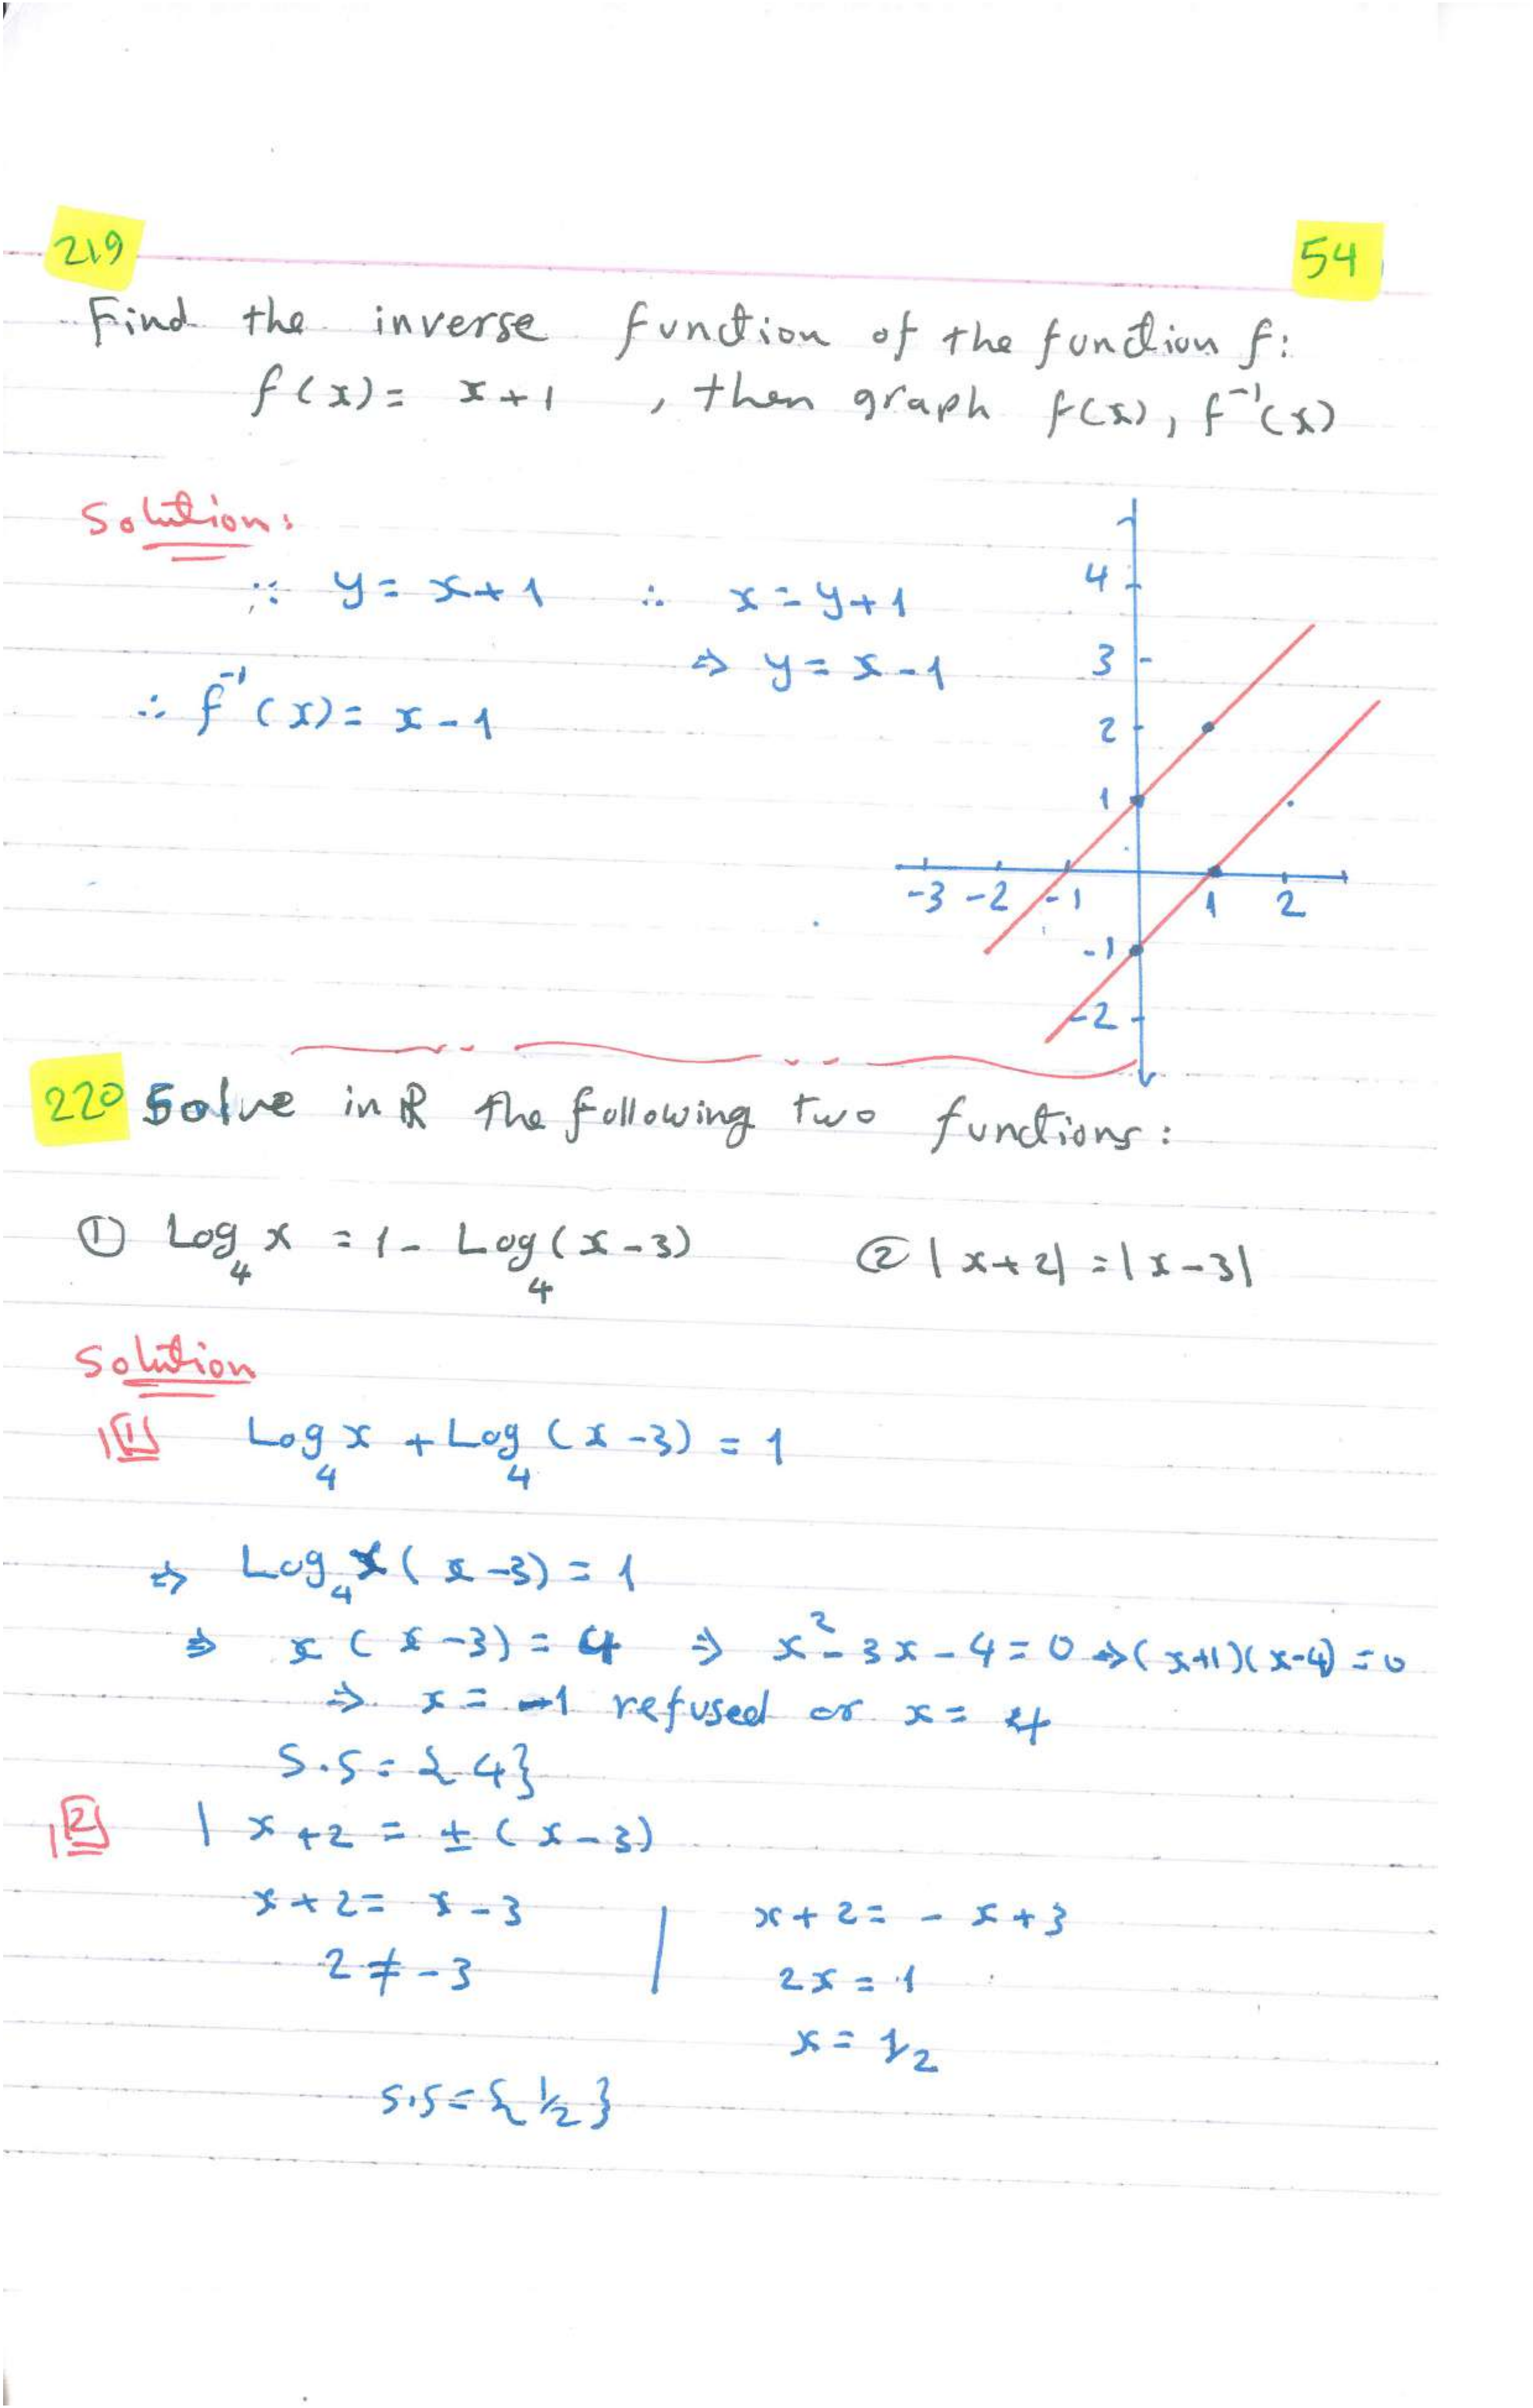 219
54
Find the inverse function of the function f:
f(x) = x+1 , then graph f(x), f⁻¹(x)
Solution:
∵ y = x+1 ∴ x = y+1
⇒ y = x-1
∴ f⁻¹(x) = x-1
4
3
2
1
-3 -2 -1 1 2
-1
-2
220 Solve in R the following two functions:
① Log₄ x = 1 - Log₄ (x-3) ② |x+2| = |x-3|
Solution
1 Log₄ x + Log₄ (x-3) = 1
⇒ Log₄ x(x-3) = 1
⇒ x(x-3) = 4 ⇒ x² - 3x - 4 = 0 ⇒ (x+1)(x-4) = 0
⇒ x = -1 refused or x = 4
S.S = {4}
2 | x+2 = ± (x-3)
x+2 = x-3 | x+2 = -x+3
2 ≠ -3 2x = 1
x = 1/2
S.S = {1/2}